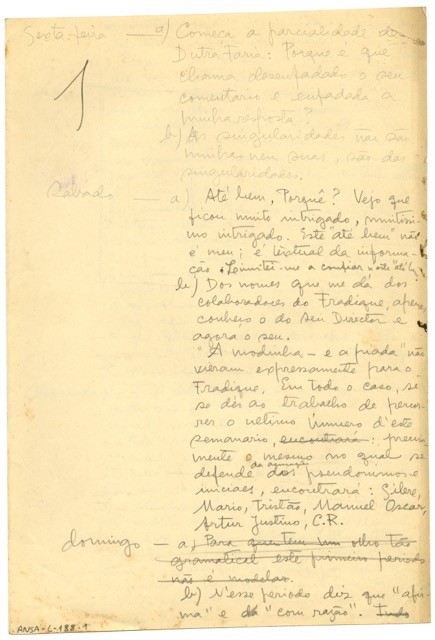 Sexta-feira — a) Começa a parcialidade de
Dutra Faria: Porque é que
chama desenfadado o seu
comentario e enfadada a
minha resposta?
b) As singularidades não são
minhas nem suas, são das
singularidades.
1
Sábado — a) Até bem, Porquê? Vejo que
ficou muito intrigado, muitíssi-
mo intrigado. Este "até bem" não
é meu; é textual da informa-
ção. Limitei-me a confiar neste "até b
b) Dos nomes que me dá dos
colaboradores do Fradique, apenas
conheço o do seu Director e
agora o seu.
"A modinha — e a piada" não
vieram expressamente para o
Fradique. Em todo o caso, se
se dér ao trabalho de percor-
rer o ultimo numero d'este
semanario, encontrará: preci
mente o mesmo no qual se
defende da acusação dos pseudonimos e
iniciaes, encontrará:
Mario, Tristão, Manuel Oscar,
Artur Justino, C.R.
domingo — a) Para quem tem um olho tão
gramatical este primeiro periodo
não é modelar.
b) N'esse periodo diz que "afir-
ma" e dá "com razão". Tudo
ANSA-L-188-1